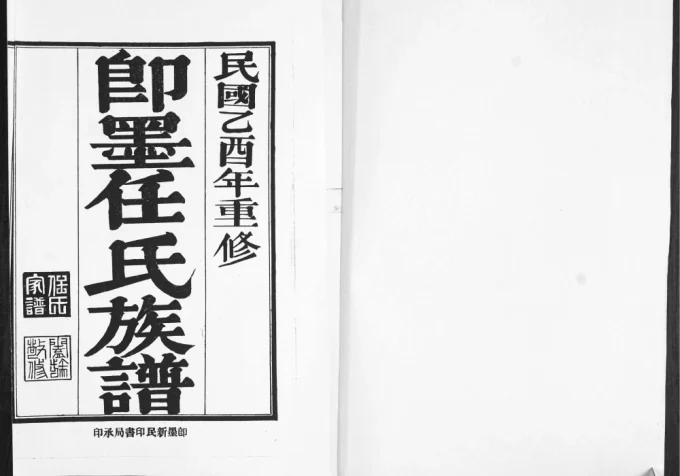 民國乙酉年重修
即墨任氏族譜
任氏家譜
印承局書印民新墨即